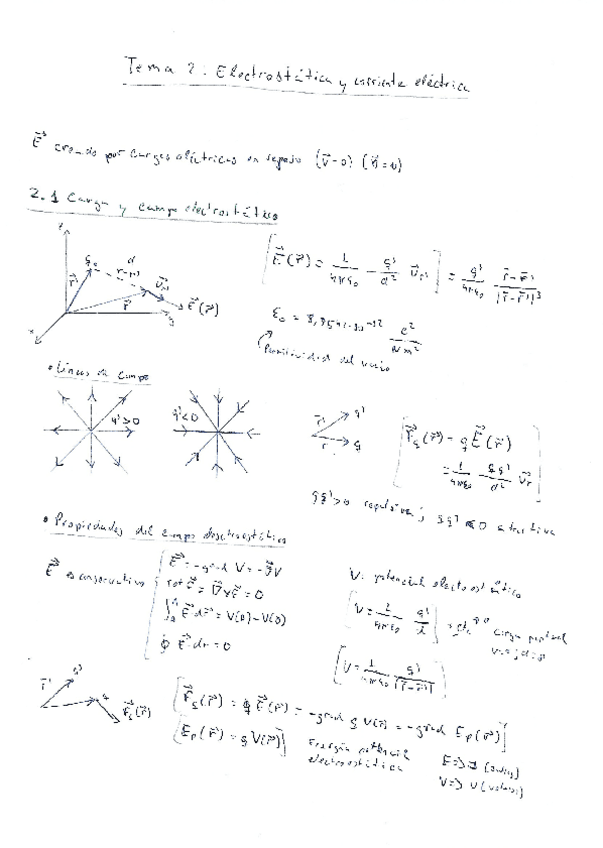 Tema 2: Electrostática y corriente eléctrica
E⃗ creado por cargas eléctricas en reposo (v⃗=0)
2.1 Carga y campo electrostático
[E⃗(r⃗) = 1/4πε₀ q'/d² u⃗r] = q'/4πε₀ (r⃗-r⃗')/|r⃗-r⃗'|³
z
q'
d
r-r'
r⃗'
u⃗r
r⃗
E⃗(r⃗)
x
y
ε₀ = 8,854·10⁻¹² C²/Nm²
Permitividad del vacío
• Líneas de campo
q'>0
q'<0
r⃗'
q'
r
q
[F⃗q(r⃗) = q E⃗(r⃗)
= 1/4πε₀ qq'/d² u⃗r]
qq'>0 repulsiva; qq'<0 atractiva
• Propiedades del campo electrostático
E⃗ es conservativo
E⃗ = -grad V = -∇⃗V
rot E⃗ = ∇⃗×E⃗ = 0
E⃗ dr⃗ = V(A)-V(B)
∮ E⃗ dr = 0
V: potencial electrostático
[V = 1/4πε₀ q'/d] + cte
carga puntual
[V = 1/4πε₀ q'/|r⃗-r⃗'|]
r⃗'
q'
q
F⃗q(r⃗)
[F⃗q(r⃗) = q E⃗(r⃗) = -grad q V(r⃗) = -grad Ep(r⃗)]
[Ep(r⃗) = q V(r⃗)]
Energía potencial
electrostática
E => J (Julios)
V => V (voltios)